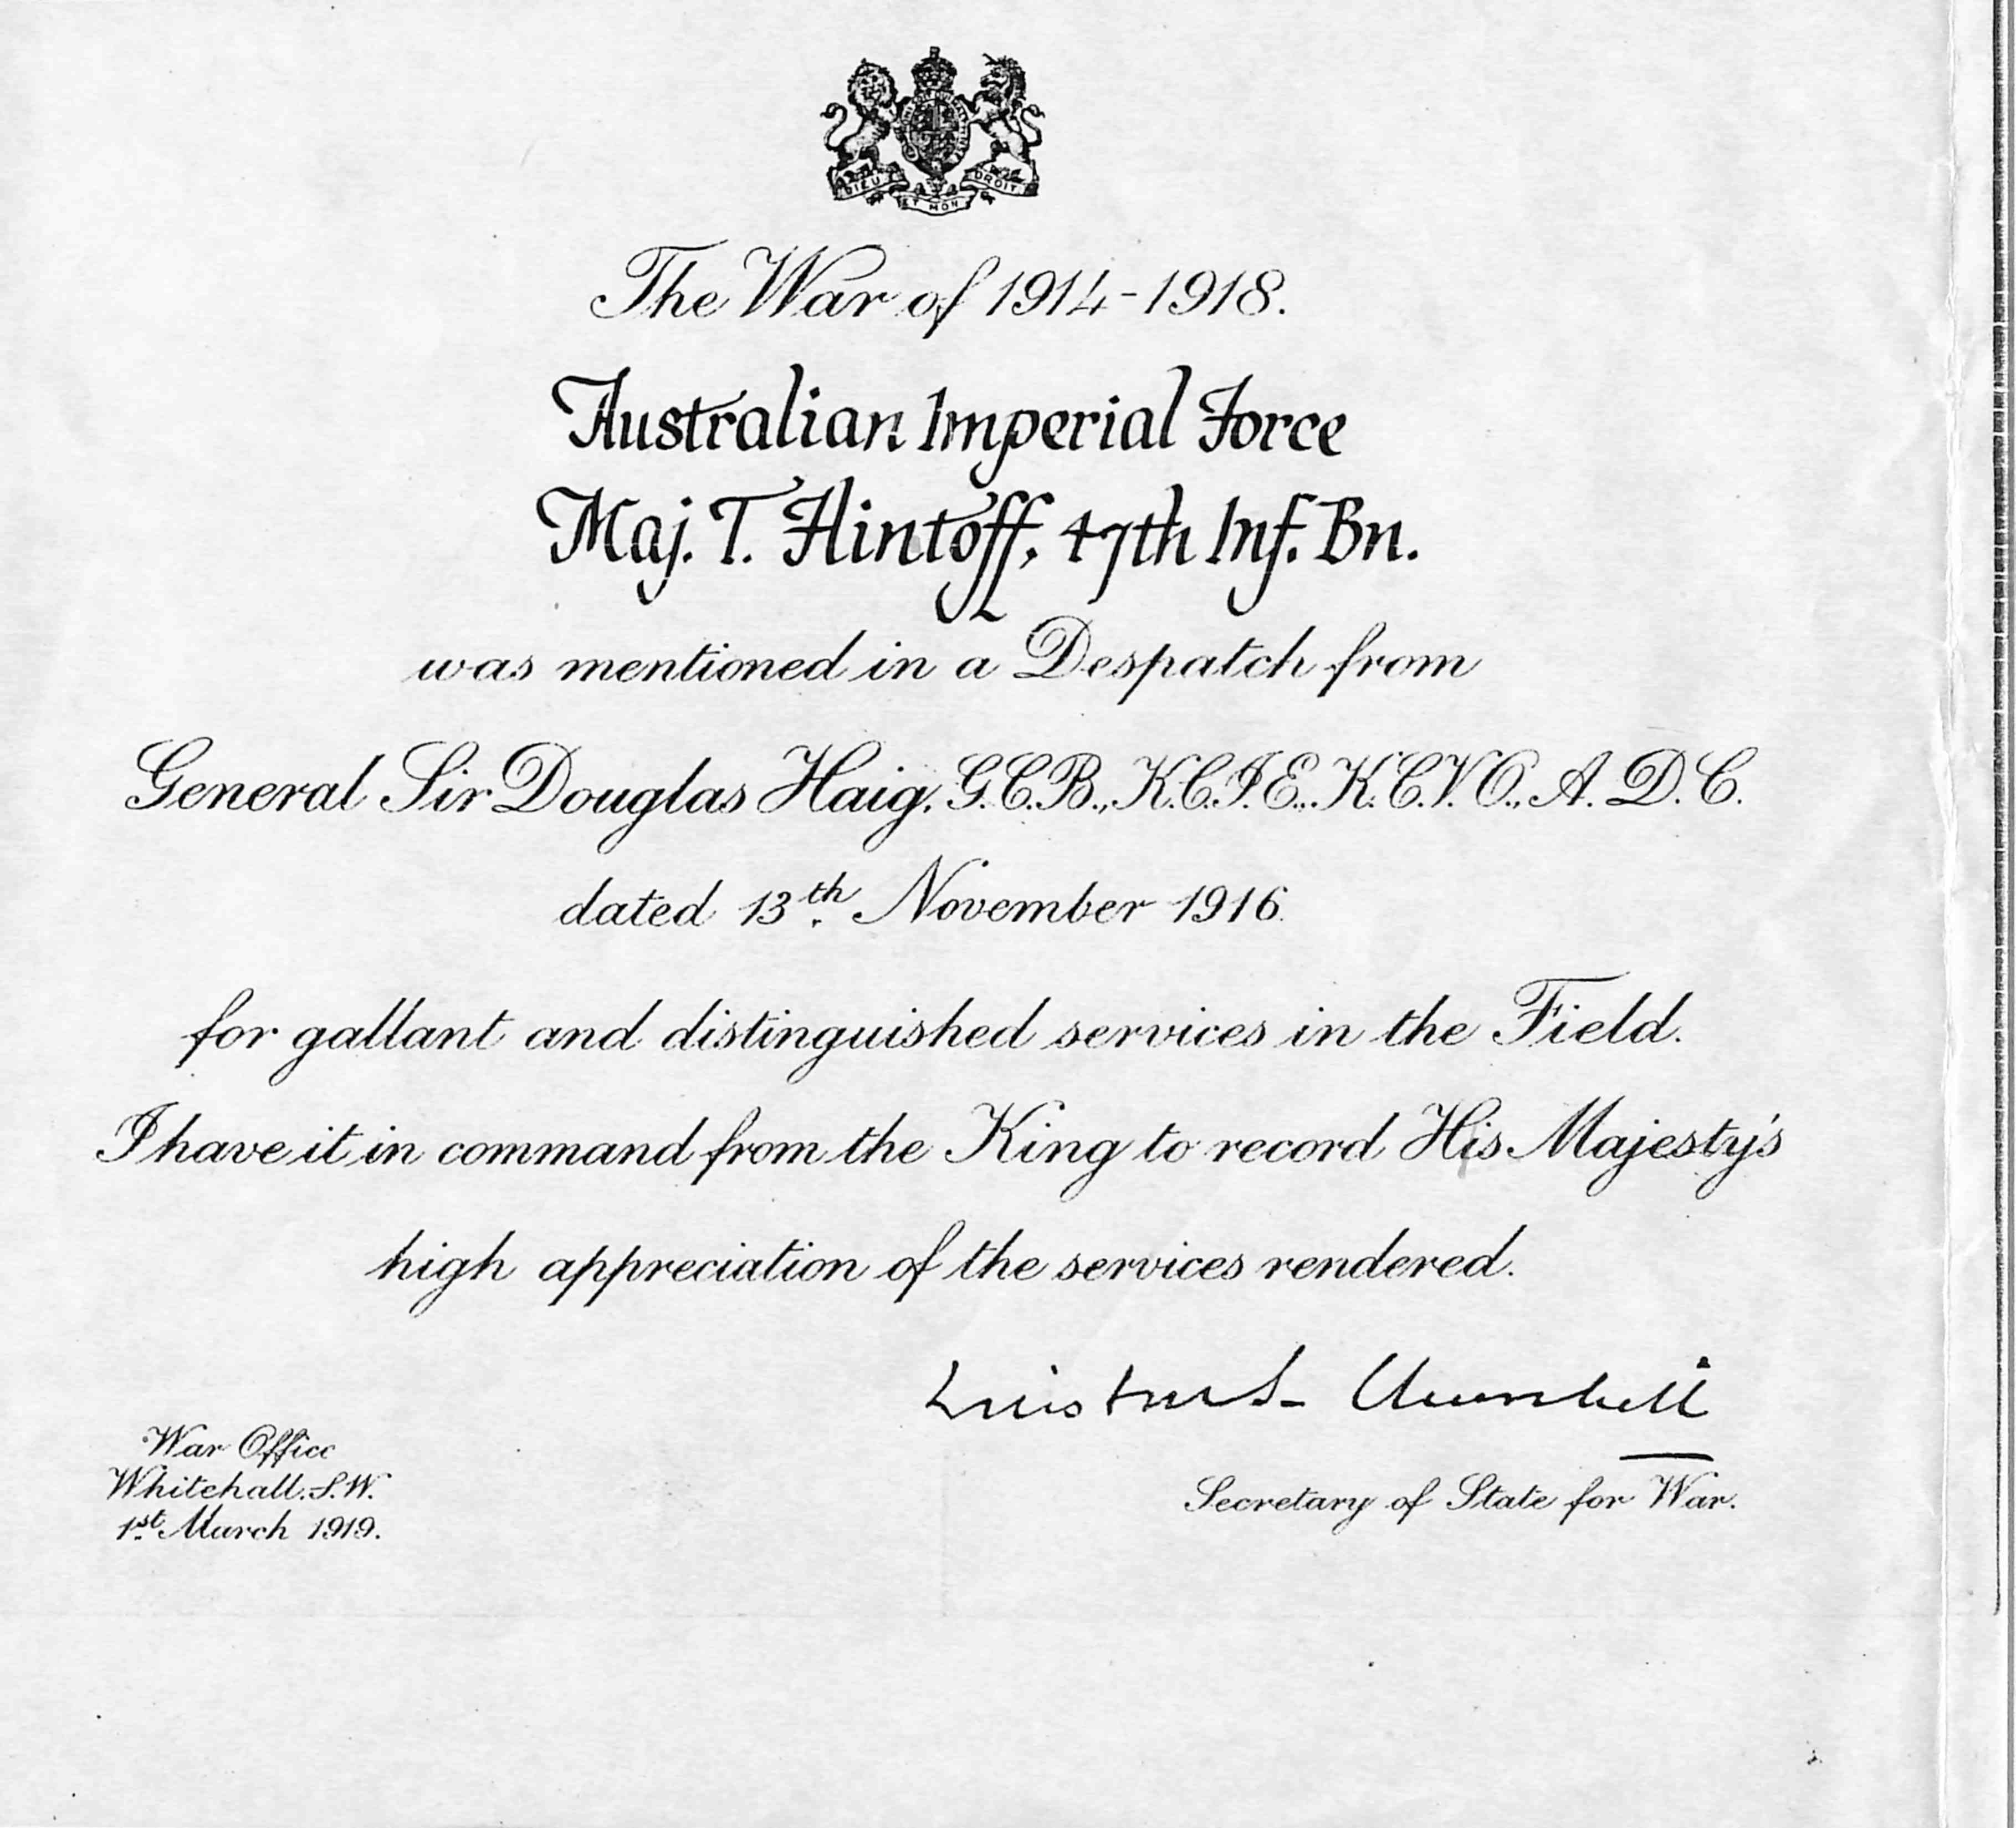 DIEU ET MON DROIT
The War of 1914-1918.
Australian Imperial Force
Maj. T. Hintoff, 47th Inf. Bn.
was mentioned in a Despatch from
General Sir Douglas Haig, G.C.B., K.C.I.E., K.C.V.O., A.D.C.
dated 13th November 1916.
for gallant and distinguished services in the Field.
I have it in command from the King to record His Majesty's
high appreciation of the services rendered.
Winston S. Churchill
War Office
Whitehall. S.W.
1st March 1919.
Secretary of State for War.